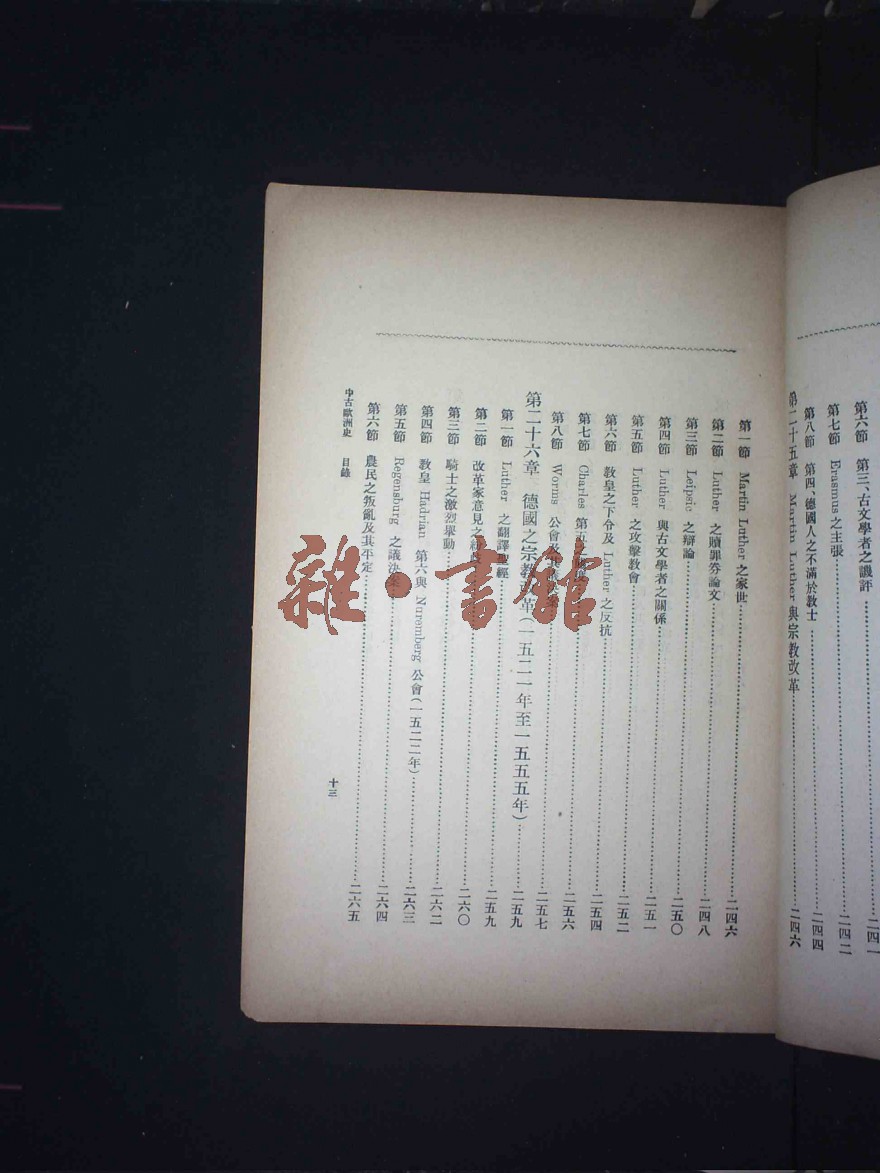 第六節　第三、古文學者之譏評……二四一
第七節　Erasmus之主張……二四二
第八節　第四、德國人之不滿於教士……二四四
第二十五章　Martin Luther與宗教改革……二四六
第一節　Martin Luther之家世……二四六
第二節　Luther之贖罪券論文……二四八
第三節　Leipsic之辯論……二五〇
第四節　Luther與古文學者之關係……二五一
第五節　Luther之攻擊教會……二五二
第六節　教皇之下令及Luther之反抗……二五四
第七節　Charles第五……二五六
第八節　Worms公會及其……二五七
第二十六章　德國之宗教改革（一五二一年至一五五五年）……二五九
第一節　Luther之翻譯聖經……二五九
第二節　改革家意見之……二六〇
第三節　騎士之激烈舉動……二六二
第四節　教皇Hadrian第六與Nuremberg公會（一五二二年）……二六三
第五節　Regensburg之議決案……二六四
第六節　農民之叛亂及其平定……二六五
中古歐洲史　目錄
十三
雜·書館